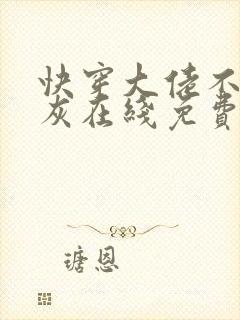 快穿大佬不
灰在线免費
瑭恩